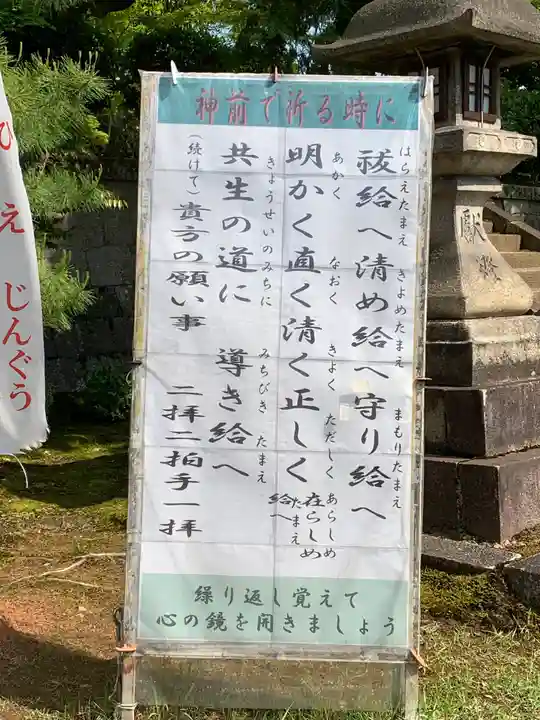 神前で祈る時に
祓給へ清め給へ守り給へ
はらえたまえ きよめたまえ まもりたまえ
明かく直く清く正しく在らしめ給へ
あかく なおく きよく ただしく あらしめ たまえ
共生の道に 導き給へ
きょうせいのみちに みちびき たまえ
(続けて)貴方の願い事 二拝二拍手一拝
繰り返し覚えて
心の鏡を開きましょう
ひえ じんぐう
献